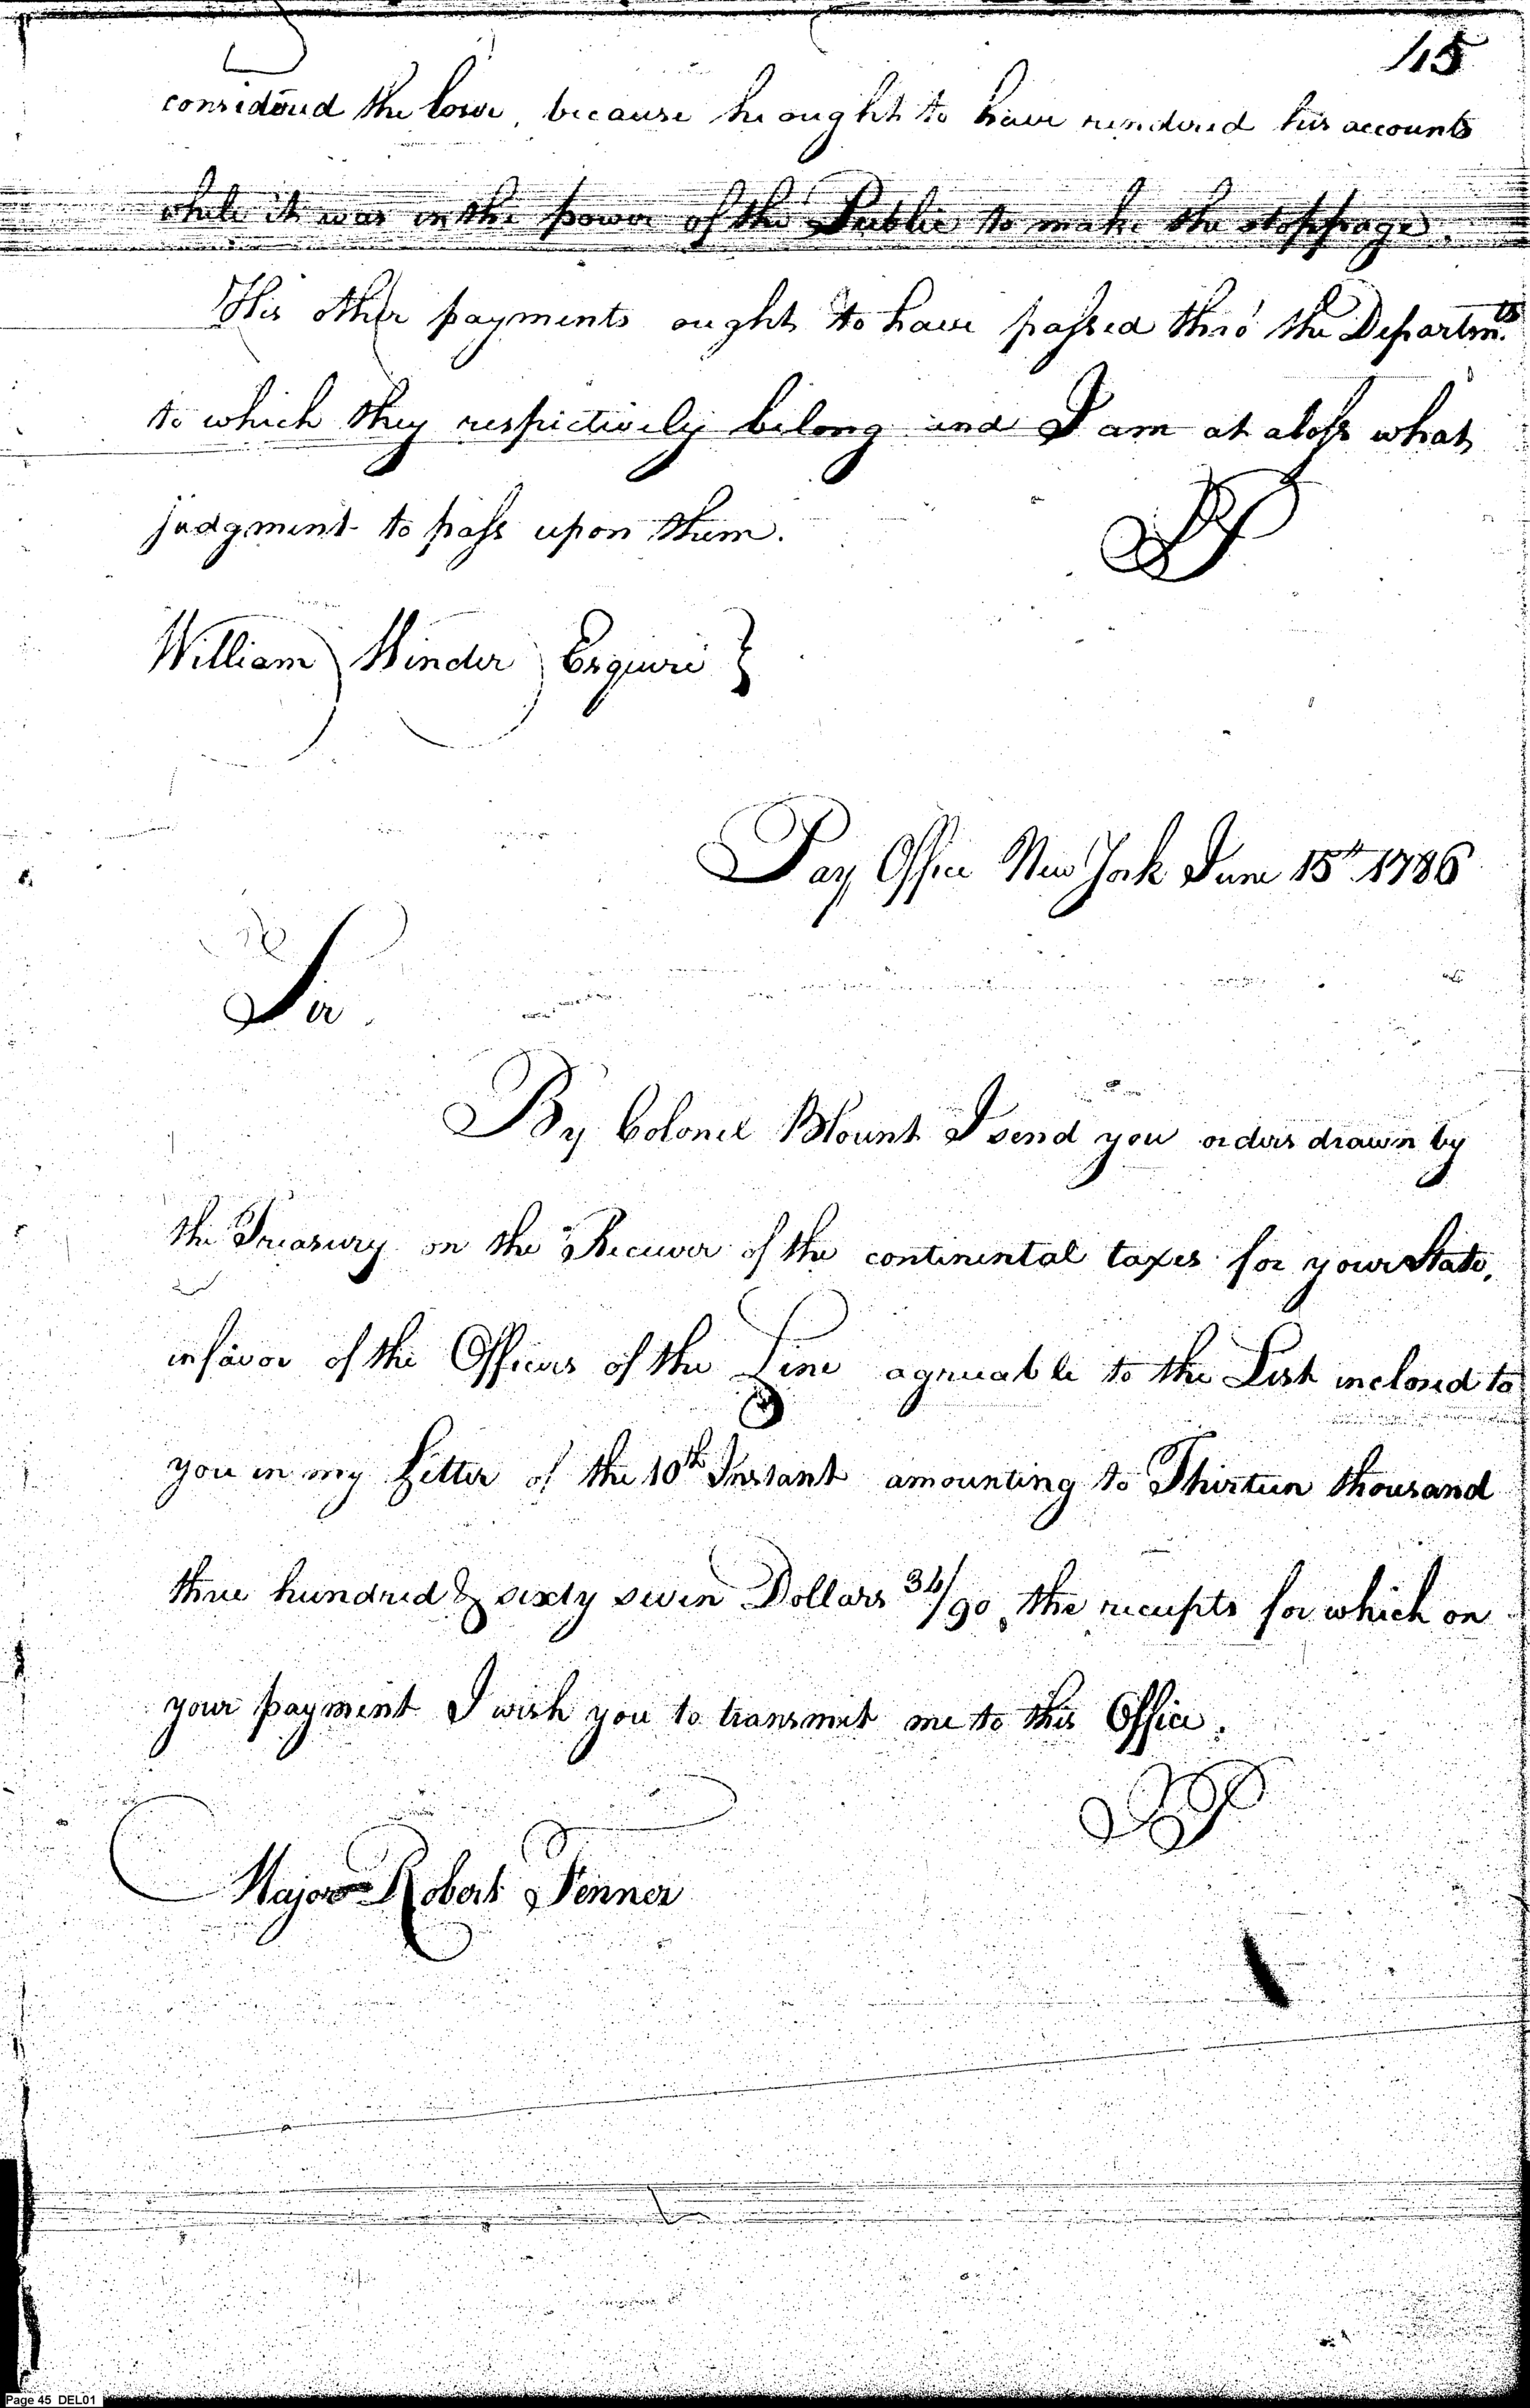 45
considered the loser, because he ought to have rendered his accounts
while it was in the power of the Public to make the stoppage.
His other payments ought to have passed thro' the Departmts.
to which they respectively belong and I am at a loss what
judgment to pass upon them.
William Winder Esquire }
Pay Office New York June 15th 1786
Sir
By Colonel Blount I send you orders drawn by
the Treasury on the Receiver of the continental taxes for your State,
in favor of the Officers of the Line agreeable to the List inclosed to
you in my Letter of the 10th Instant amounting to Thirteen thousand
three hundred & sixty seven Dollars 34/90, the receipts for which on
your payment I wish you to transmit me to this Office.
Major Robert Fenner
Page 45 DEL01